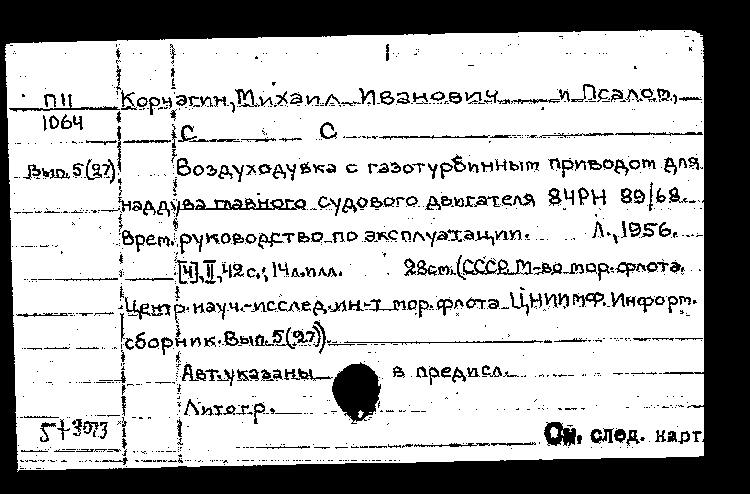 П11 Корнягин, Михаил Иванович и Псалом,
1064
С С
Вып. 5(27) Воздуходувка с газотурбинным приводом для
наддува главного судового двигателя 84РН 89/68.
Врем. руководство по эксплуатации. Л., 1956.
[4], II, 42 с.; 14 л. илл. 28 см. (СССР. М-во мор. флота.
Центр. науч.-исслед. ин-т мор. флота ЦНИИМФ. Информ.
сборник. Вып. 5(27)).
Авт. указаны в предисл.
Литогр.
См. след. карт.